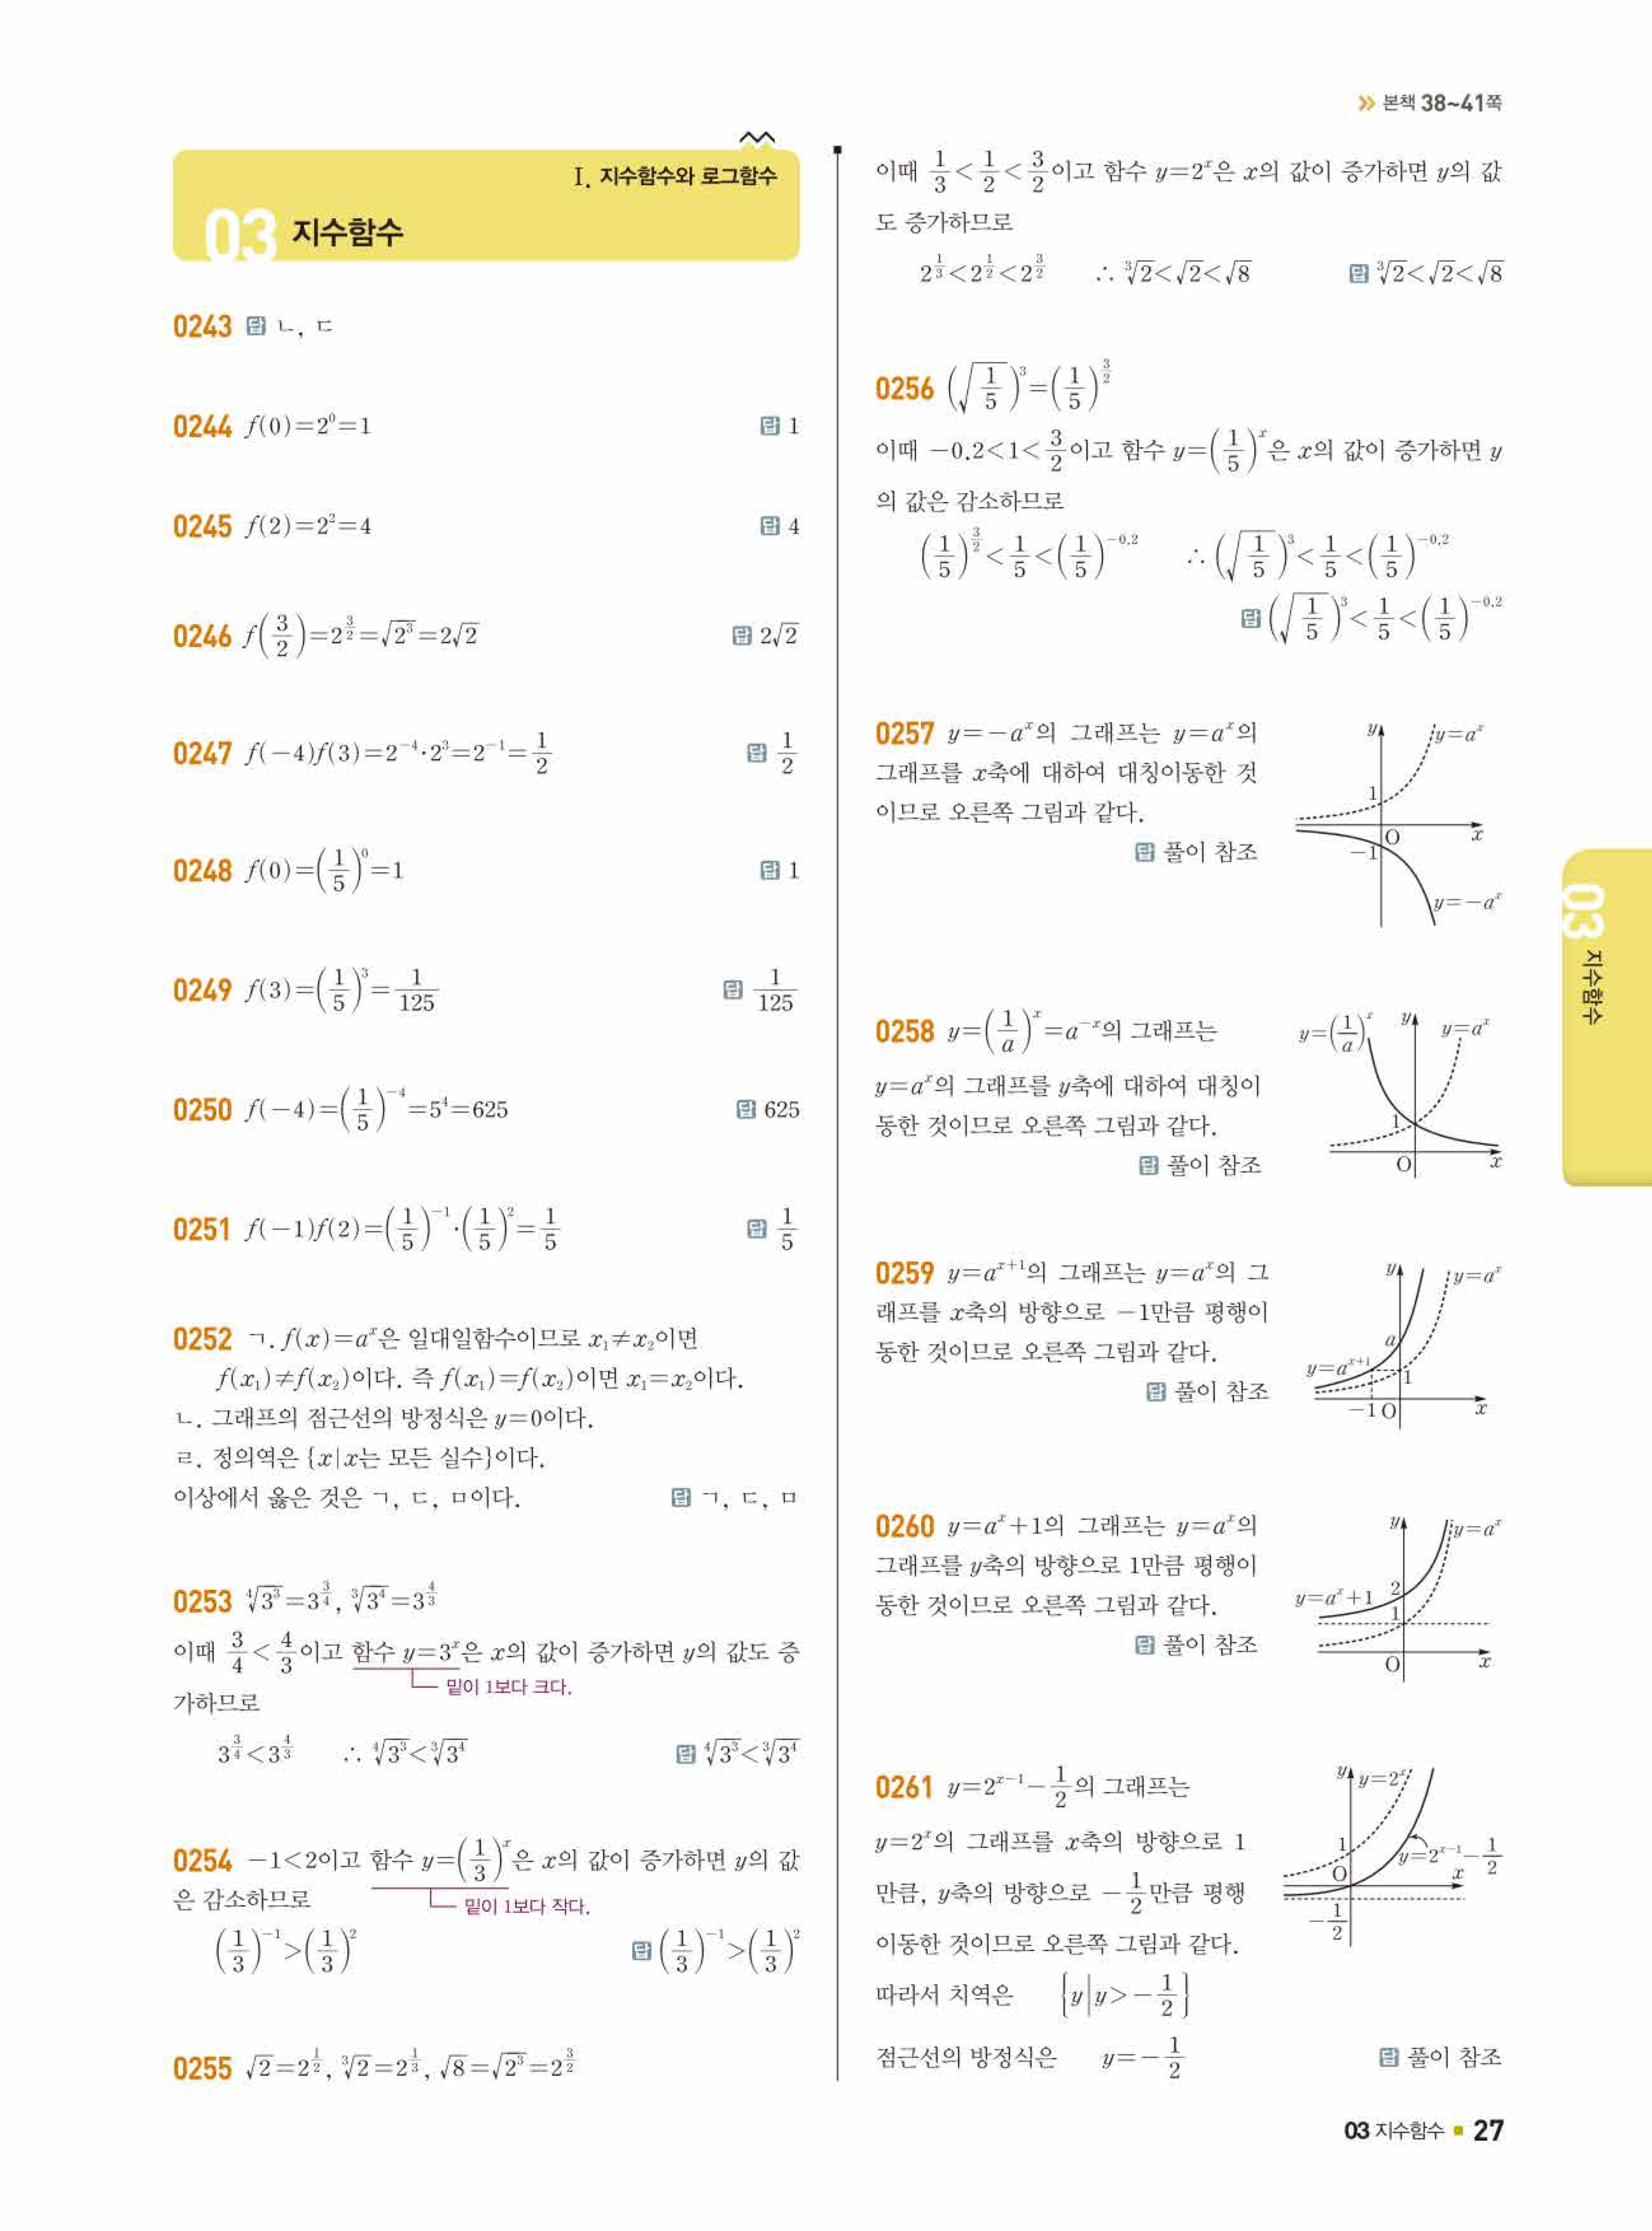 >> 본책 38~41쪽
Ⅰ. 지수함수와 로그함수
03 지수함수
0243 답 ㄴ, ㄷ
0244 f(0)=2⁰=1 답 1
0245 f(2)=2²=4 답 4
0246 f(3/2)=2^(3/2)=√(2³)=2√2 답 2√2
0247 f(-4)f(3)=2⁻⁴·2³=2⁻¹=1/2 답 1/2
0248 f(0)=(1/5)⁰=1 답 1
0249 f(3)=(1/5)³=1/125 답 1/125
0250 f(-4)=(1/5)⁻⁴=5⁴=625 답 625
0251 f(-1)f(2)=(1/5)⁻¹·(1/5)²=1/5 답 1/5
0252 ㄱ. f(x)=aˣ은 일대일함수이므로 x₁≠x₂이면
f(x₁)≠f(x₂)이다. 즉 f(x₁)=f(x₂)이면 x₁=x₂이다.
ㄴ. 그래프의 점근선의 방정식은 y=0이다.
ㄹ. 정의역은 {x|x는 모든 실수}이다.
이상에서 옳은 것은 ㄱ, ㄷ, ㅁ이다. 답 ㄱ, ㄷ, ㅁ
0253 ⁴√(3³)=3^(3/4), ³√(3⁴)=3^(4/3)
이때 3/4<4/3이고 함수 y=3ˣ은 x의 값이 증가하면 y의 값도 증
밑이 1보다 크다.
가하므로
3^(3/4)<3^(4/3) ∴ ⁴√(3³)<³√(3⁴) 답 ⁴√(3³)<³√(3⁴)
0254 -1<2이고 함수 y=(1/3)ˣ은 x의 값이 증가하면 y의 값
은 감소하므로
밑이 1보다 작다.
(1/3)⁻¹>(1/3)² 답 (1/3)⁻¹>(1/3)²
0255 √2=2^(1/2), ³√2=2^(1/3), √8=√(2³)=2^(3/2)
이때 1/3<1/2<3/2이고 함수 y=2ˣ은 x의 값이 증가하면 y의 값
도 증가하므로
2^(1/3)<2^(1/2)<2^(3/2) ∴ ³√2<√2<√8 답 ³√2<√2<√8
0256 (√(1/5))³=(1/5)^(3/2)
이때 -0.2<1<3/2이고 함수 y=(1/5)ˣ은 x의 값이 증가하면 y
의 값은 감소하므로
(1/5)^(3/2)<1/5<(1/5)^(-0.2) ∴ (√(1/5))³<1/5<(1/5)^(-0.2)
답 (√(1/5))³<1/5<(1/5)^(-0.2)
0257 y=-aˣ의 그래프는 y=aˣ의
그래프를 x축에 대하여 대칭이동한 것
이므로 오른쪽 그림과 같다.
답 풀이 참조
y y=aˣ
1
O x
-1
y=-aˣ
0258 y=(1/a)ˣ=a⁻ˣ의 그래프는
y=aˣ의 그래프를 y축에 대하여 대칭이
동한 것이므로 오른쪽 그림과 같다.
답 풀이 참조
y=(1/a)ˣ y y=aˣ
1
O x
0259 y=aˣ⁺¹의 그래프는 y=aˣ의 그
래프를 x축의 방향으로 -1만큼 평행이
동한 것이므로 오른쪽 그림과 같다.
답 풀이 참조
y y=aˣ
a
y=aˣ⁺¹
1
-1 O x
0260 y=aˣ+1의 그래프는 y=aˣ의
그래프를 y축의 방향으로 1만큼 평행이
동한 것이므로 오른쪽 그림과 같다.
답 풀이 참조
y y=aˣ
y=aˣ+1 2
1
O x
0261 y=2ˣ⁻¹-1/2의 그래프는
y=2ˣ의 그래프를 x축의 방향으로 1
만큼, y축의 방향으로 -1/2만큼 평행
이동한 것이므로 오른쪽 그림과 같다.
따라서 치역은 {y|y>-1/2}
점근선의 방정식은 y=-1/2 답 풀이 참조
y y=2ˣ
1
y=2ˣ⁻¹-1/2
O x
-1/2
03 지수함수
03 지수함수 ▪ 27